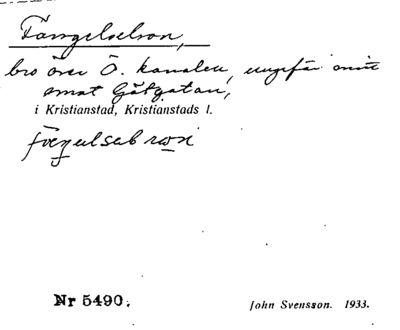 Fängelsebron,
bro över Ö. kanalen, ungefär mitt
emot Götgatan,
i Kristianstad, Kristianstads l.
Nr 5490.
John Svensson. 1933.